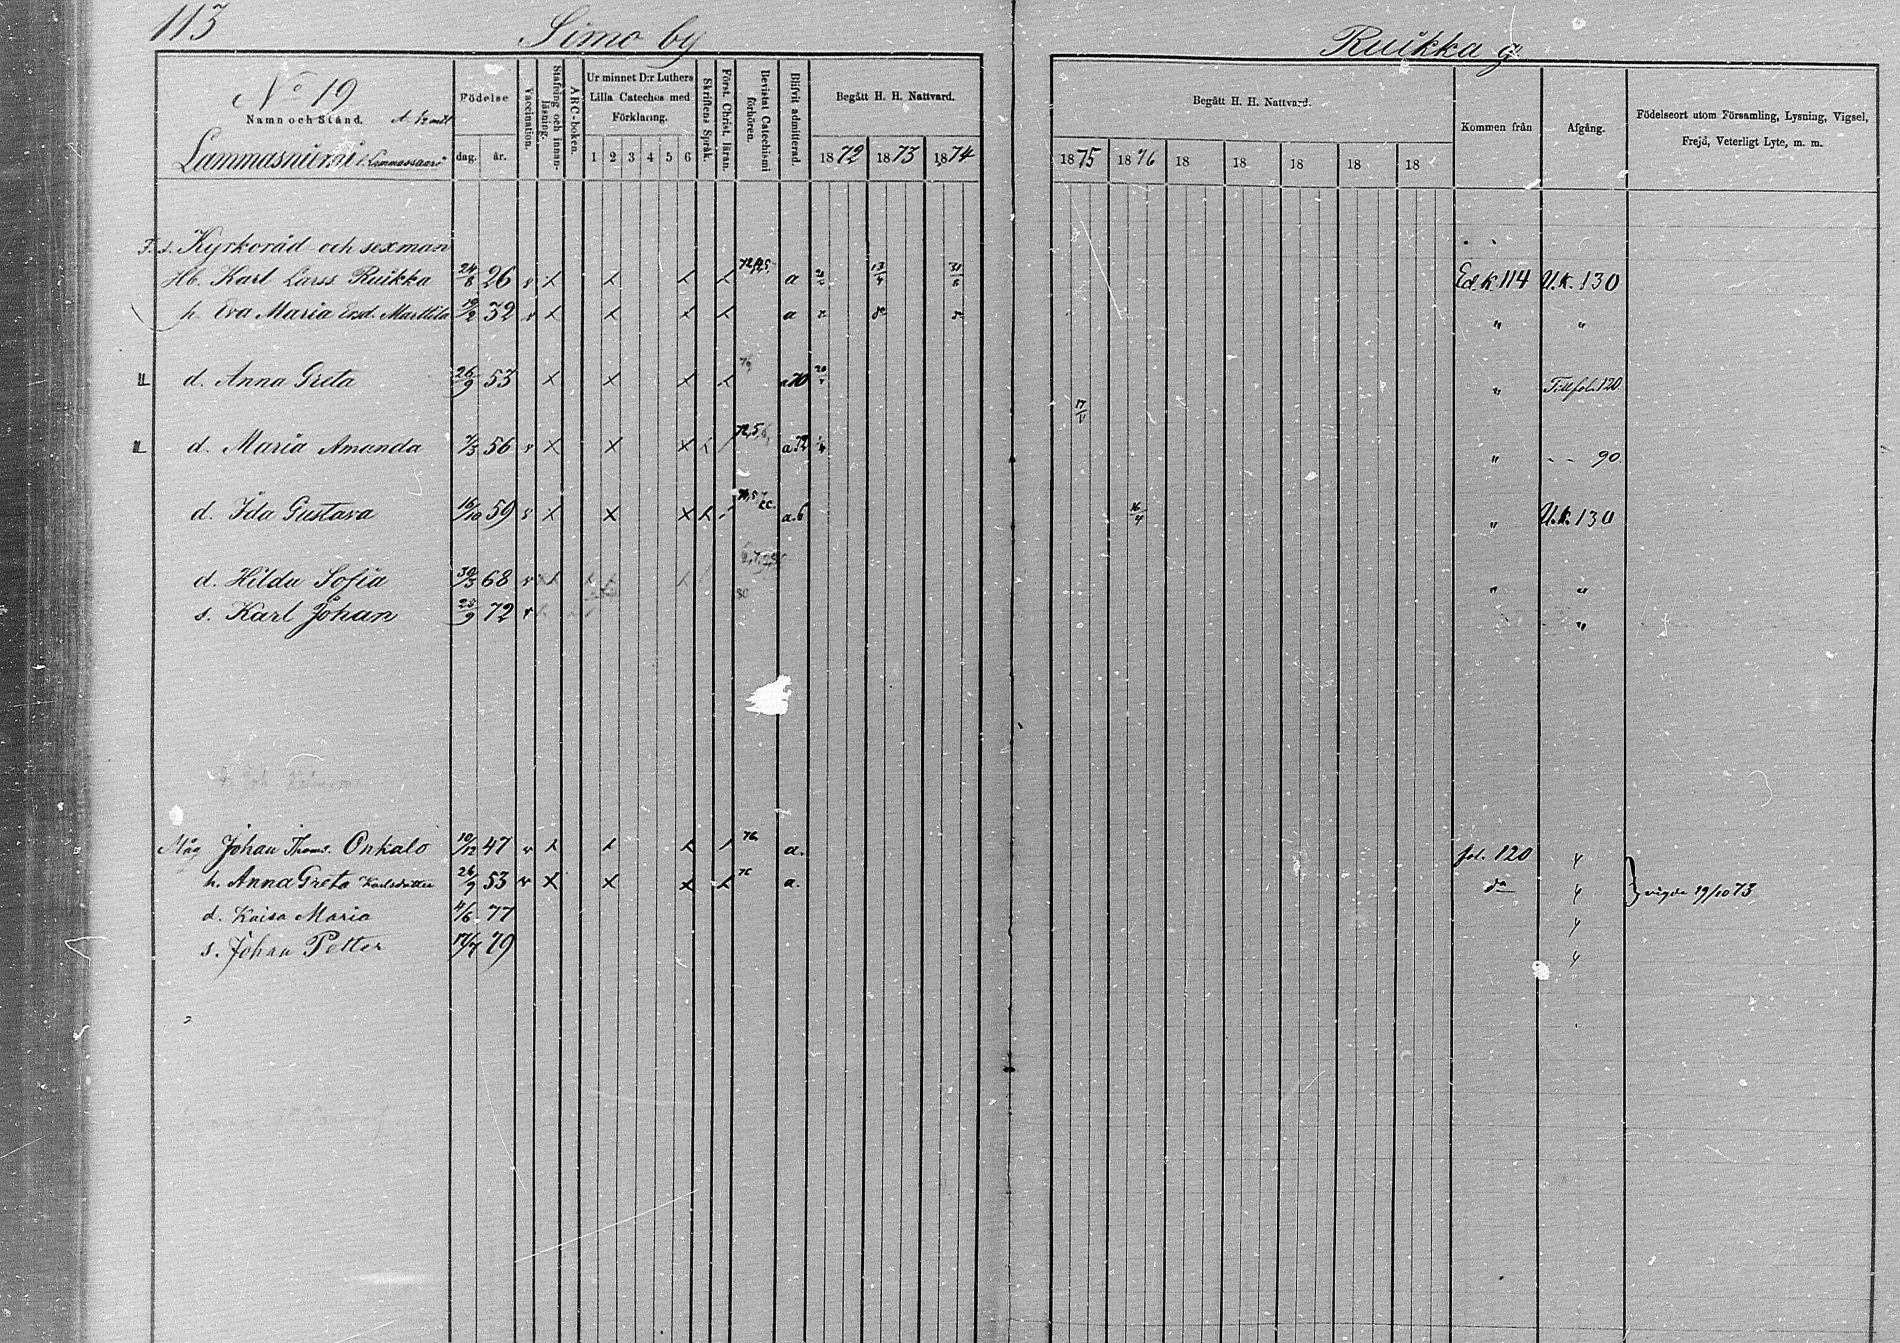 113
Simo by
Ruikka g.
No 19
Namn och Stånd.
Lammasniemi
Födelse
dag. år.
Vaccination.
Stafning och innan-läsning.
ABC-boken.
Ur minnet D:r Luthers
Lilla Cateches med
Förklaring.
1 2 3 4 5 6
Skriftens Språk.
Först. Christ. läran.
Bevistat Catechismi förhören.
Blifvit admitterad.
Begått H. H. Nattvard.
1872 1873 1874
Begått H. H. Nattvard.
1875 1876 18 18 18 18 18
Kommen från
Afgång.
Födelseort utom Församling, Lysning, Vigsel,
Frejd, Veterligt Lyte, m. m.
Kyrkoråd och sexman
Hb. Karl Larss Ruikka 24/8 26 v a 13/4 31/5 Ed. k. 114 U.k. 130
h. Eva Maria Ersd. Marttila 19/2 32 v a do " "
d. Anna Greta 26/9 53 a 70 " Till fol. 120.
17/
d. Maria Amanda 7/3 56 v 72,5,6, a. 72 " - - 90.
d. Ida Gustava 16/10 59 v a. 6 16/4 " U.k. 130
d. Hilda Sofia 30/3 68 v " "
80
s. Karl Johan 25/9 72 v "
Måg Johan Thoms. Onkalo 10/12 47 v 76 a. fol. 120 4
h. Anna Greta Karlsdotter 26/9 53 v 76 a. do 4 vigde 19/10 73
d. Kaisa Maria 4/6 77 4
s. Johan Petter 17/7 79 4